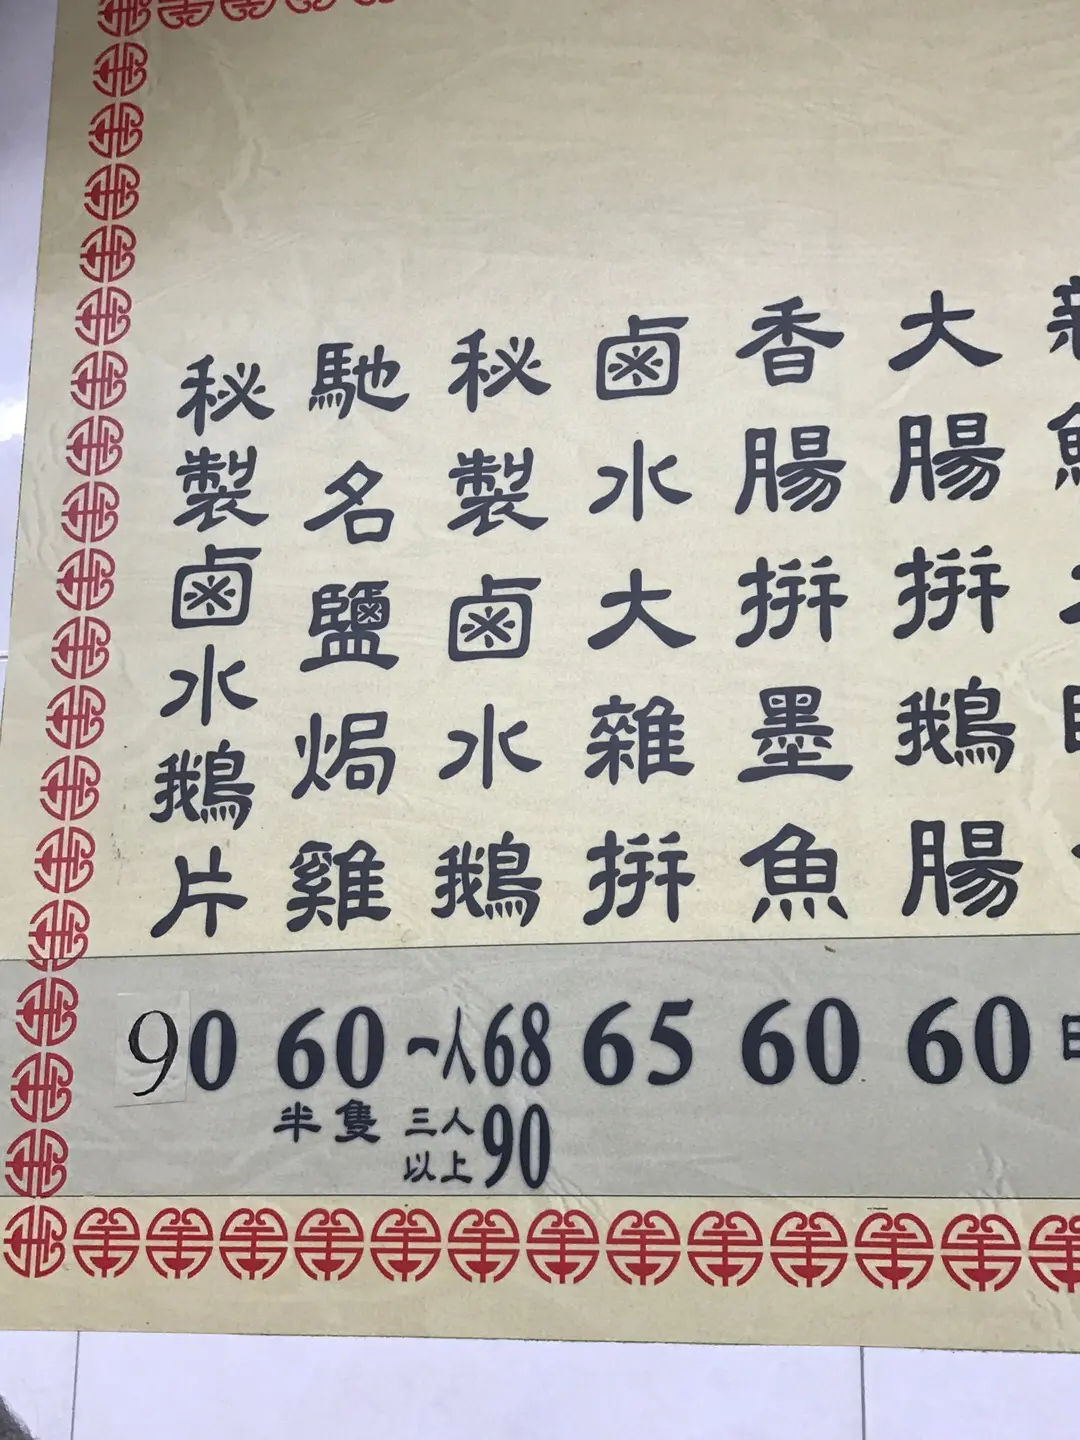 大腸拼鵝腸
60
香腸拼墨魚
60
鹵水大雜拼
65
秘製鹵水鵝
一人68
三人以上90
馳名鹽焗雞
60
半隻
秘製鹵水鵝片
90